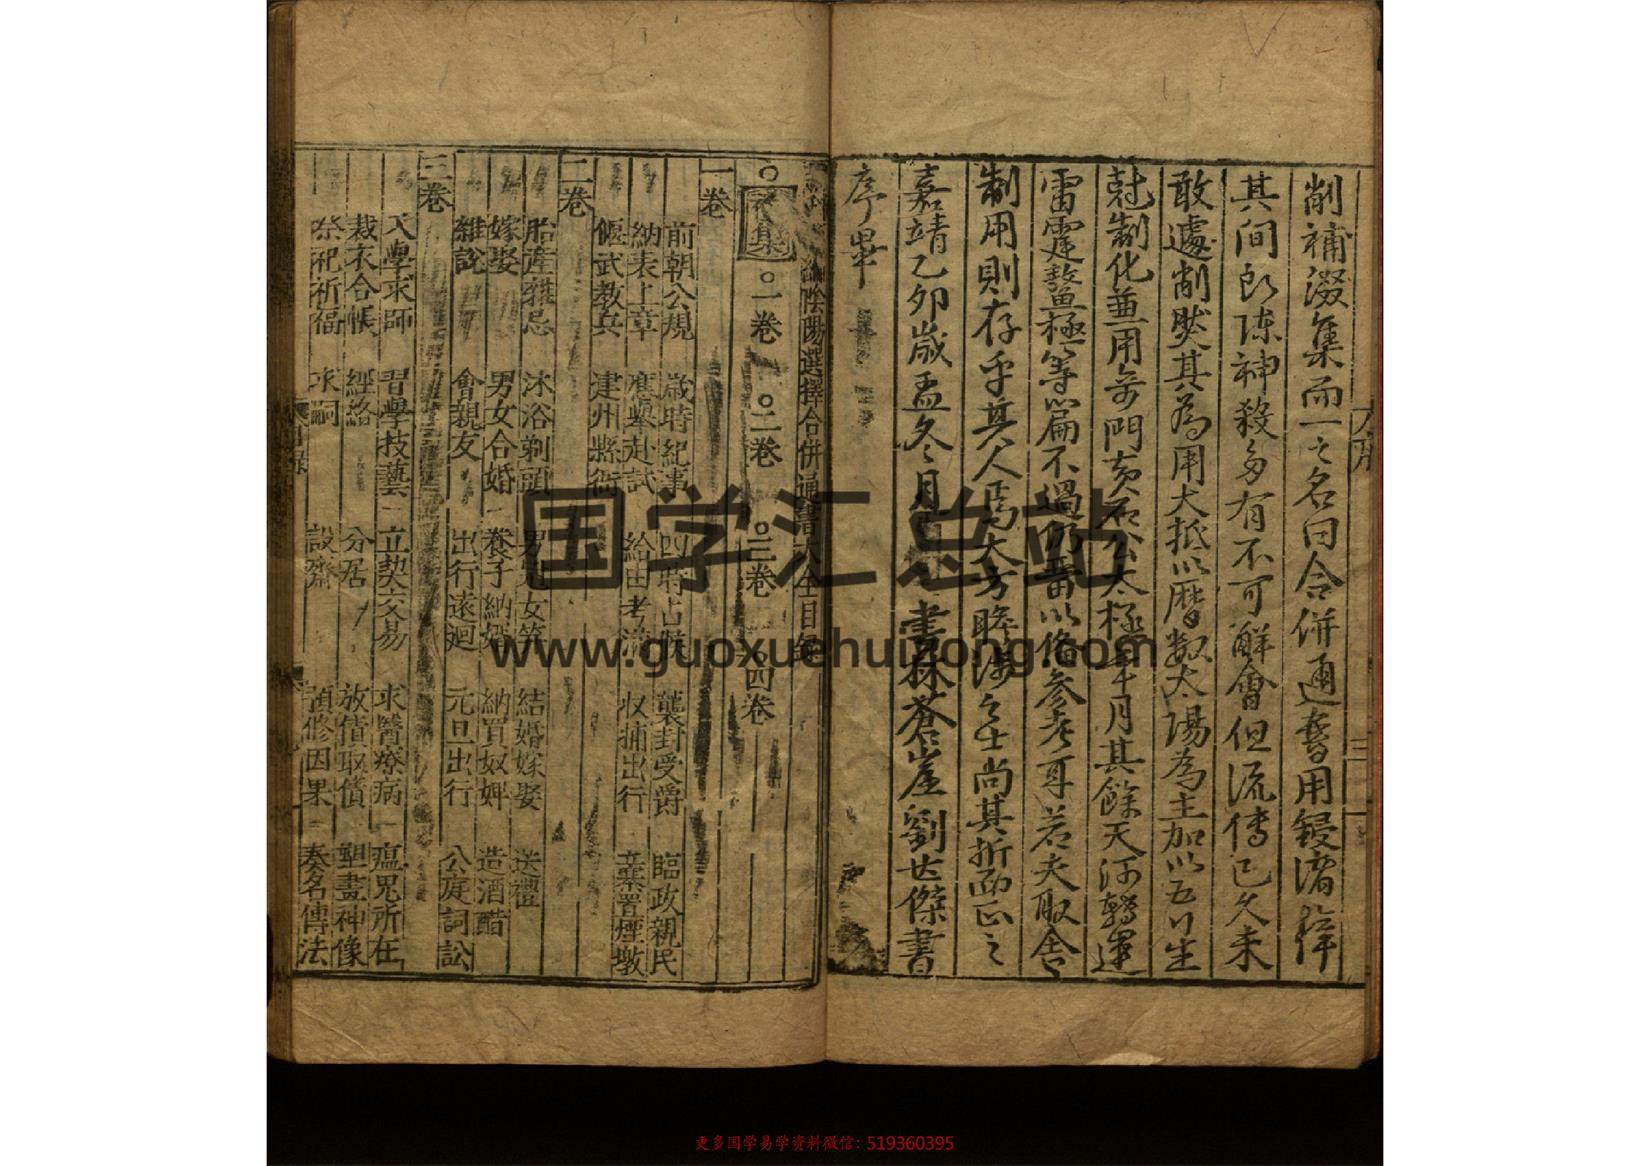 削補濲集而一之名曰合併通書用鋟濟梓
其間取陳神殺多有不可解會但流傳已久未
敢遽削然其為用大抵以曆數太陽為主加以五行生
尅制化兼用奇門黃石公太極年月其餘天河轉運
雷霆鰲極等篇不過仍舊以俻參考耳若夫取舍
制用則存乎其人焉大方瞻浅之士尚其折而正之
嘉靖乙卯歲孟冬冬月 書林蒼崖劉世傑書
序畢
陰陽選擇合併通書大全目錄
集 一卷 二卷 三卷 四卷
一卷
前朝公規 歲時紀事 四時占候 襲封受爵 臨政親民
納表上章 應舉赴試 給由考滿 收捕出行 葉署煙墩
偃武教兵 建州縣衙
二卷
胎產雜忌 沐浴剃頭 男冠女笄 結婚嫁娶 送禮
嫁娶 男女合婚 養子納婿 納買奴婢 造酒醋
雜說 會親友 出行遠迴 元旦出行 公庭詞訟
三卷
入學求師 習學技藝 立契交易 求醫療病 瘟鬼所在
裁衣合帳 經絡 分居 放債取債 塑畫神像
祭祀祈福 求嗣 設齋 預修因果 奏名傳法
国学汇总站
www.guoxuehuizong.com
更多国学易学资料微信：519360395